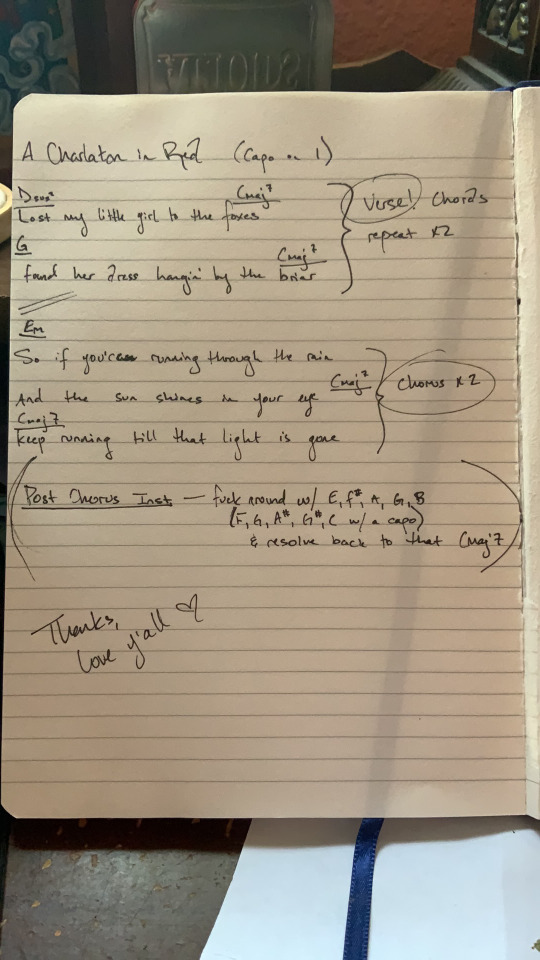 A Charlaton in Red (Capo on 1)
Dsus² Cmaj7
Lost my little girl to the foxes
G Cmaj7
found her dress hangin' by the briar
Verse! Chords
repeat x2
Em
So if you're running through the rain
And the sun shines in your eye Cmaj7
Cmaj7
keep running till that light is gone
Chorus x2
(Post Chorus Inst — fuck around w/ E, f#, A, G, B
(F, G, A#, G#, C w/ a capo)
& resolve back to that Cmaj7)
Thanks,
Love y'all ♡